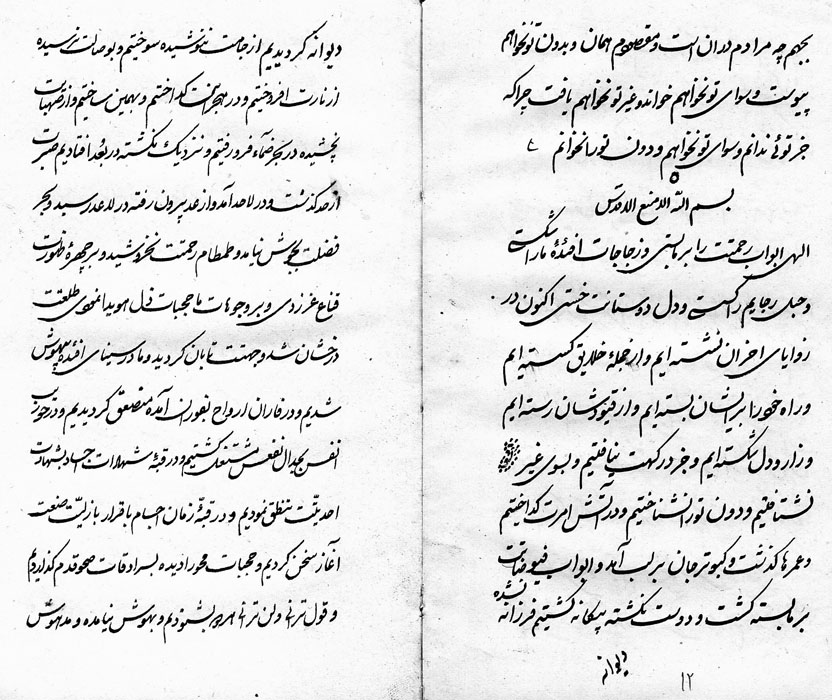 بجهم چه مرادم دران است و مقصودم همان و بدون تو نخواهم
پیوست و سوای تو نخواهم خواند و غیر تو نخواهم یافت چرا که
جز توئی ندانم و سوای تو نخواهم و دون تو را نخوانم ع
بسم الله الامنع الاقدس
الهی ابواب رحمتت را بر ما بستی و زجاجات افئدهٔ ما را شکستی
و حبل رجایم را گسستی و دل دوستانت خستی اکنون در
زوایای احزان نشسته ایم و از جملهٔ خلایق گسسته ایم
و راه خود را بر ایشان بسته ایم و از قیودشان رسته ایم
و زار و دل شکسته ایم و جز در کهفت نیافتیم و بسوی غیر
نشتافتیم و دون تو را نشناختیم و در آتش امرت گداختیم
و عمرها گذشت و کبوتر جان بر لب آمد و ابواب فیوضاتت
بر ما بسته گشت و دوست نگشته بیگانه گشتیم فرزانه نشده
دیوانه
۱۲
دیوانه گردیدیم از جامت ننوشیده سوختیم و بوصالت نرسیده
از نارت افروختیم و در هجرانت گداختیم و بهمین ساختیم و از صهبایت
نچشیده در بحر صماء فرو رفتیم و نزدیک نگشته در بعد افتادیم صبرت
از حد گذشت و در لاحد آمد و از عد بیرون رفته در لاعد رسید و بحر
فضلت بجوش نیامد و طمطام رحمتت نخروشید و بر چهرهٔ ظهورت
قناع عز زدی و بر وجوهات ما حجبات ذل هویدا نمودی طلعتت
درخشان شد و جهتت تابان گردید و ما در سینای افئده بیهوش
شدیم و در فاران ارواح آمده منصعق گردیدیم و در حوریب
انفس بجدال نفس مشتغل گشتیم و در قبهٔ شهادات اجساد بشهادت
احدیتت تنطق نمودیم و در قبهٔ زمان اجسام باقرار بازلیت صنعت
آغاز سخن کردیم و حجبات محو را دیده بسرادقات صحو قدم گذاردیم
و قول ترانی و لن ترانی بشنودیم و بهوش نیامده و مدهوش